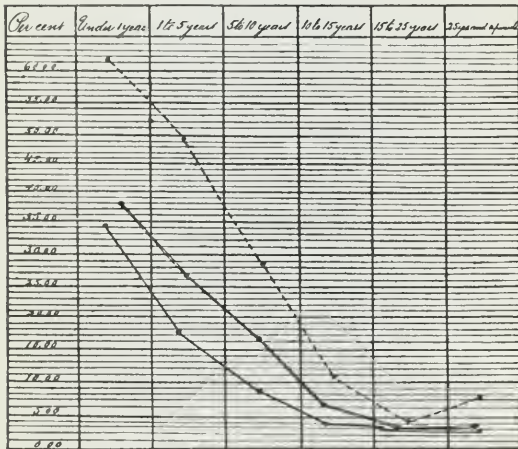 Per cent Under 1 year 1 to 5 years 5 to 10 years 10 to 15 years 15 to 25 years 25 years and upwards
60.00
55.00
50.00
45.00
40.00
35.00
30.00
25.00
20.00
10.00
10.00
5.00
0.00